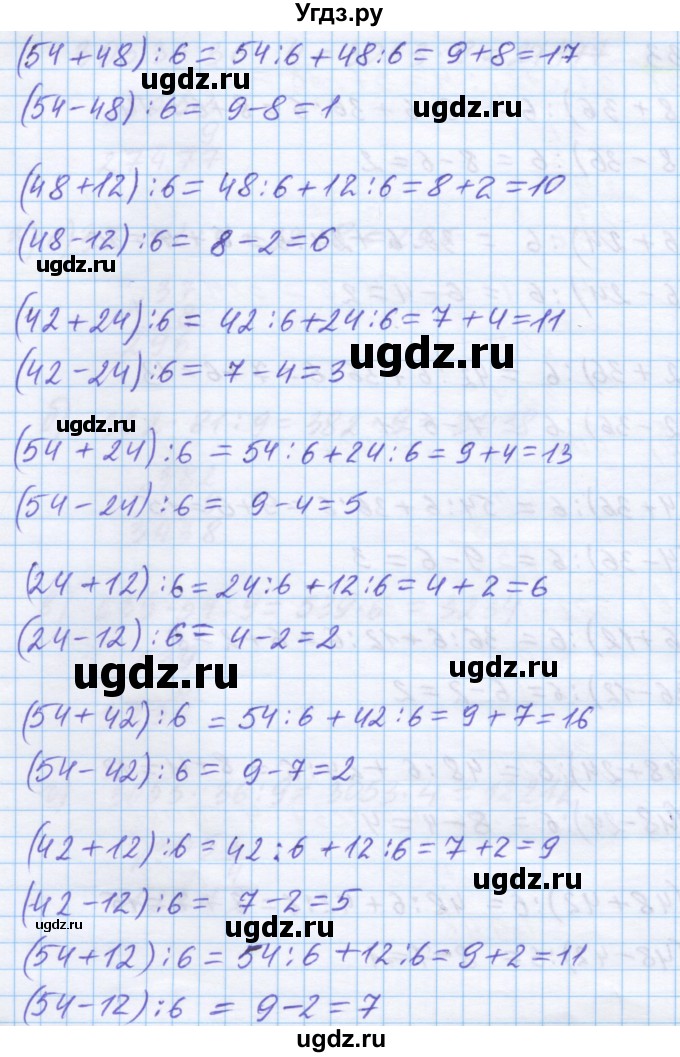 Угдз.ру
(54+48):6 = 54:6+48:6 = 9+8=17
ugdz.ru
(54-48):6 = 9-8=1
ugdz.ru
(48+12):6 = 48:6+12:6=8+2=10
(48-12):6 = 8-2=6
ugdz.ru
(42+24):6 = 42:6+24:6=7+4=11
ugdz.ru
(42-24):6 = 7-4=3
ugdz.ru
(54+24):6 = 54:6+24:6=9+4=13
(54-24):6 = 9-4=5
(24+12):6=24:6+12:6=4+2=6
(24-12):6= 4-2=2
ugdz.ru
ugdz.ru
(54+42):6 = 54:6+42:6=9+7=16
(54-42):6 = 9-7=2
(42+12):6=42:6+12:6=7+2=9
ugdz.ru
(42-12):6 = 7-2=5
ugdz.ru
ugdz.ru
(54+12):6 = 54:6+12:6=9+2=11
(54-12):6 = 9-2=7
ugdz.ru